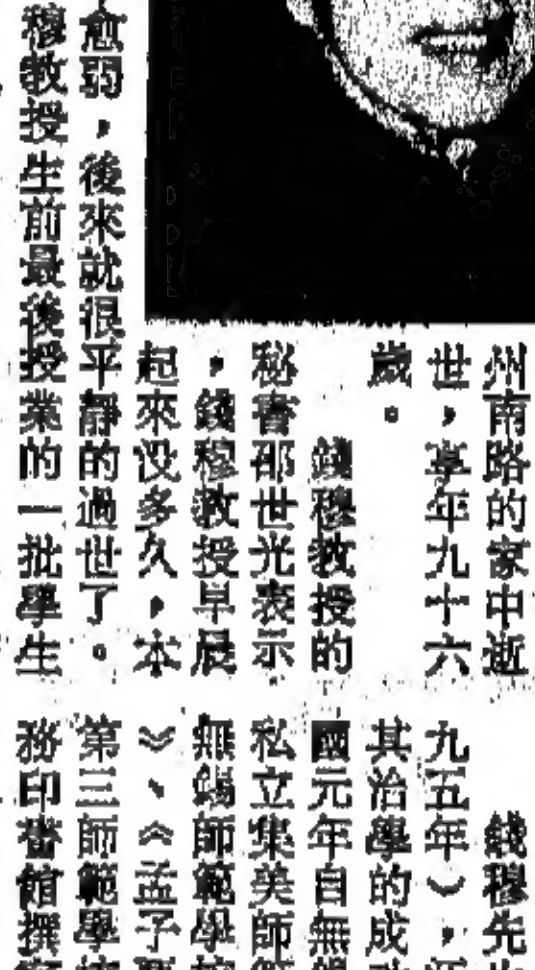 州南路的家中逝
世，享年九十六
歲。
錢穆教授的
秘書邵世光表示
，錢穆教授早晨
起來沒多久，本
愈弱，後來就很平靜的過世了。
穆教授生前最後授業的一批學生
錢穆先
九五年），
其治學的成
國元年自無
私立集美師
無錫師範學
》、《孟子
第三師範學
務印書館撰